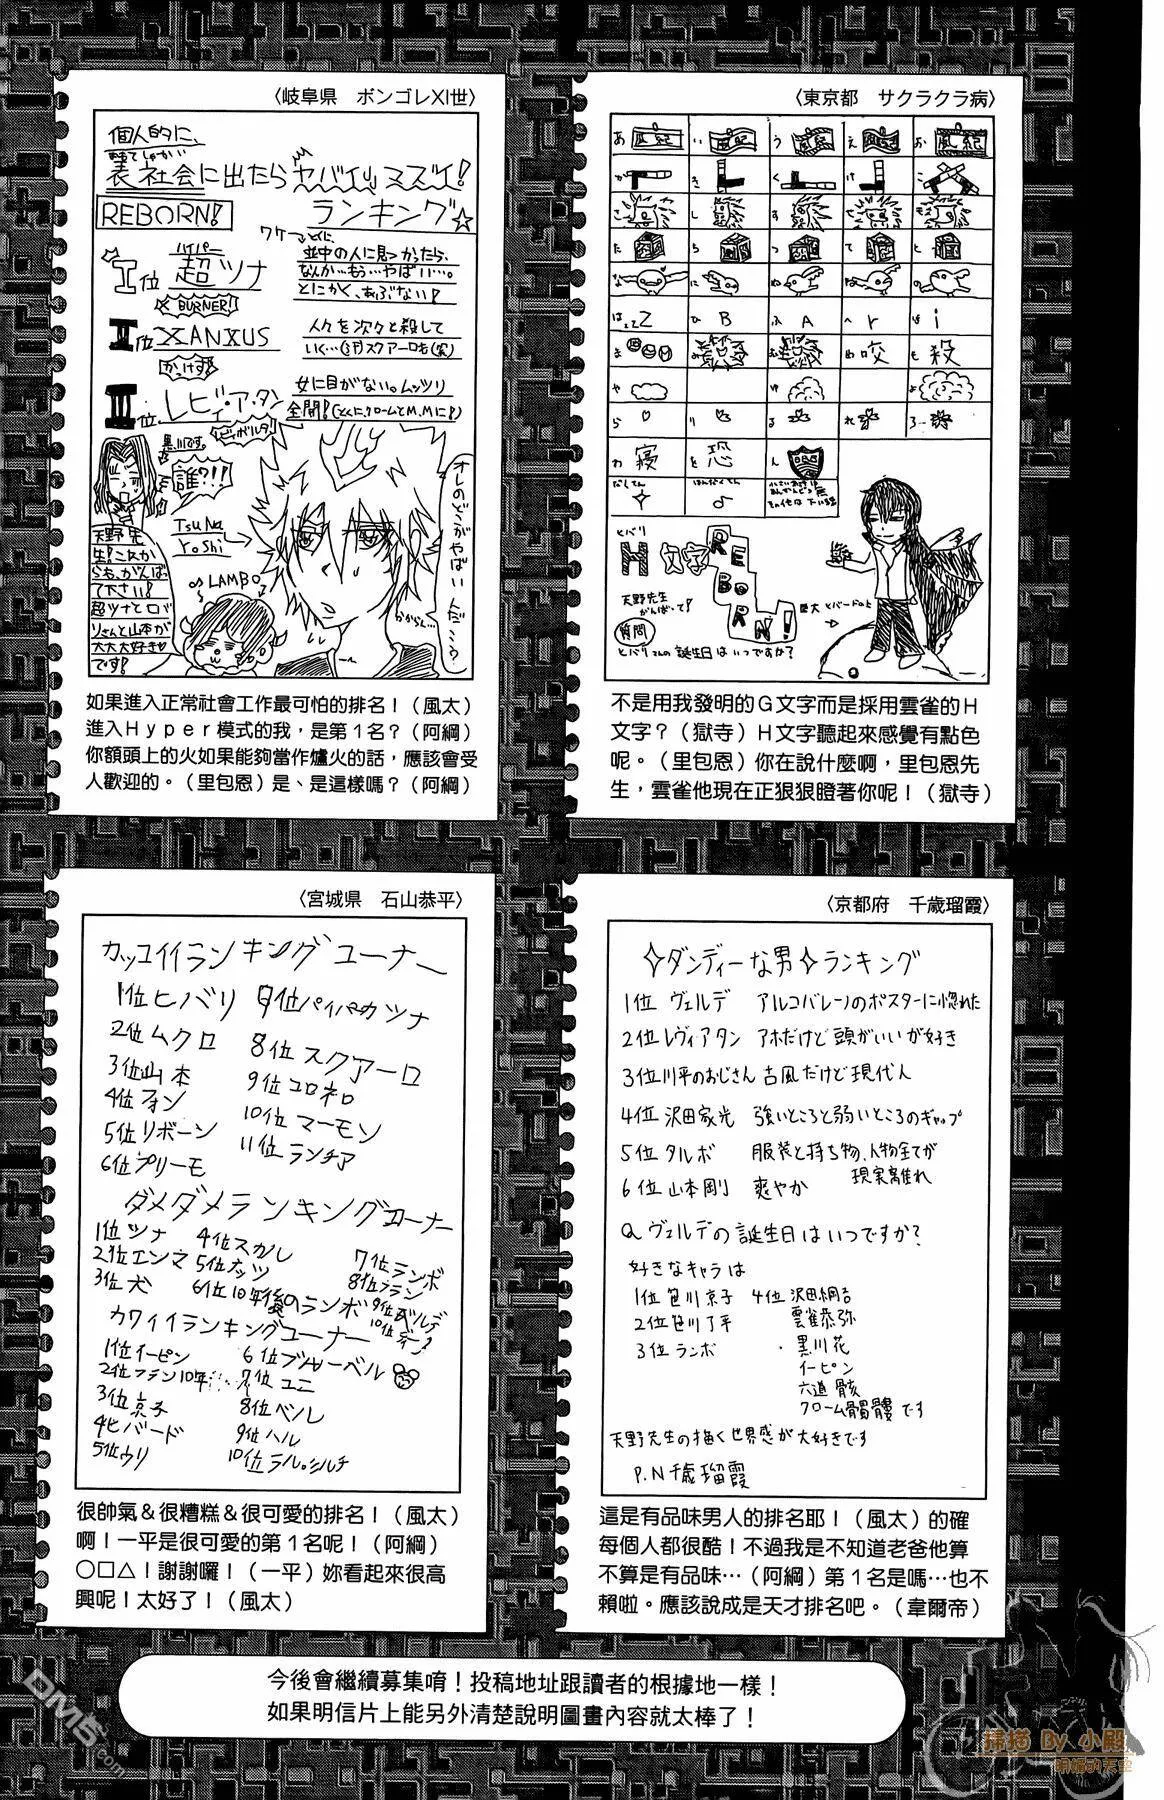 〈岐阜県　ボンゴレⅩⅠ世〉
個人的に、
表社会に出たらヤバイッマズイ!
REBORN!
ランキング☆
ワケ→とくに、
I位
ハイパー
超ツナ
BURNER!
並中の人に見つかったら、
なんか…もう…やばい…。
とにかく、あぶない!
II位 XANXUS
かっけす
人々を次々と殺して
III位 レビィ・ア・タン
女に目がない。ムッツリ
黒川です。
誰?!!
TsuNa
Yoshi
LAMBO
オレのどこがやばいんだ…?
わからん…
天野先
生!これか
らも、がんばっ
て下さい!
超ツナとロバ
りさんと山本が
大大大好き♡
です!
如果進入正常社會工作最可怕的排名!(風太)
進入Hyper模式的我,是第1名?(阿綱)
你額頭上的火如果能夠當作爐火的話,應該會受
人歡迎的。(里包恩)是、是這樣嗎?(阿綱)
〈東京都　サクラクラ病〉
あ 風紀 い う え お 風紀
か き く け こ
さ し す せ そ
た ち つ て と
な に ぬ ね の
は Z ひ B ふ A へ r ほ i
ま み む め 咬 も 殺
や ゆ よ
ら り る れ ろ
わ 寝 を 恐 ん
だくてん はんだくてん
ヒバリ
H文字
REBORN!
天野先生
がんばって!
質問
ヒバリさんの誕生日はいつですか?
巨大ヒバードの上
不是用我發明的G文字而是採用雲雀的H
文字?(獄寺)H文字聽起來感覺有點色
呢。(里包恩)你在說什麼啊,里包恩先
生,雲雀他現在正狠狠瞪著你呢!(獄寺)
〈宮城県　石山恭平〉
カッコイイランキングコーナー
1位ヒバリ
2位ムクロ
3位山本
4位フォン
5位リボーン
6位プリーモ
7位ハイパーツナ
8位スクアーロ
9位コロネロ
10位マーモン
11位ランチア
ダメダメランキングコーナー
1位ツナ
2位エンマ
3位犬
4位スカル
5位ナッツ
6位10年後のランボ
7位ランボ
8位フラン
9位ベルデ
10位ディーノ
カワイイランキングコーナー
1位イーピン
2位フラン10年
3位京子
4ヒバード
5位ウリ
6位ブルーベル
7位ユニ
8位ベル
9位ハル
10位ラル・ミルチ
很帥氣&很糟糕&很可愛的排名!(風太)
啊!一平是很可愛的第1名呢!(阿綱)
○□△!謝謝囉!(一平)妳看起來很高
興呢!太好了!(風太)
〈京都府　千歳瑠霞〉
✧ダンディーな男✧ランキング
1位 ヴェルデ アルコバレーノのポスターに惚れた
2位 レヴィアタン アホだけど頭がいいが好き
3位 川平のおじさん 古風だけど現代人
4位 沢田家光 強いところと弱いところのギャップ
5位 タルボ 服装と持ち物、人物全てが
現実離れ
6位 山本剛 爽やか
Q ヴェルデの誕生日はいつですか?
好きなキャラは
1位 笹川京子
2位 笹川了平
3位 ランボ
4位 沢田綱吉
雲雀恭弥
・黒川花
イーピン
六道 骸
クローム髑髏です
天野先生の描く世界感が大好きです
P.N 千歳瑠霞
這是有品味男人的排名耶!(風太)的確
每個人都很酷!不過我是不知道老爸他算
不算是有品味…(阿綱)第1名是嗎…也不
賴啦。應該說成是天才排名吧。(韋爾帝)
今後會繼續募集唷!投稿地址跟讀者的根據地一樣!
如果明信片上能另外清楚說明圖畫內容就太棒了!
掃描 By 小殿
DM5.com